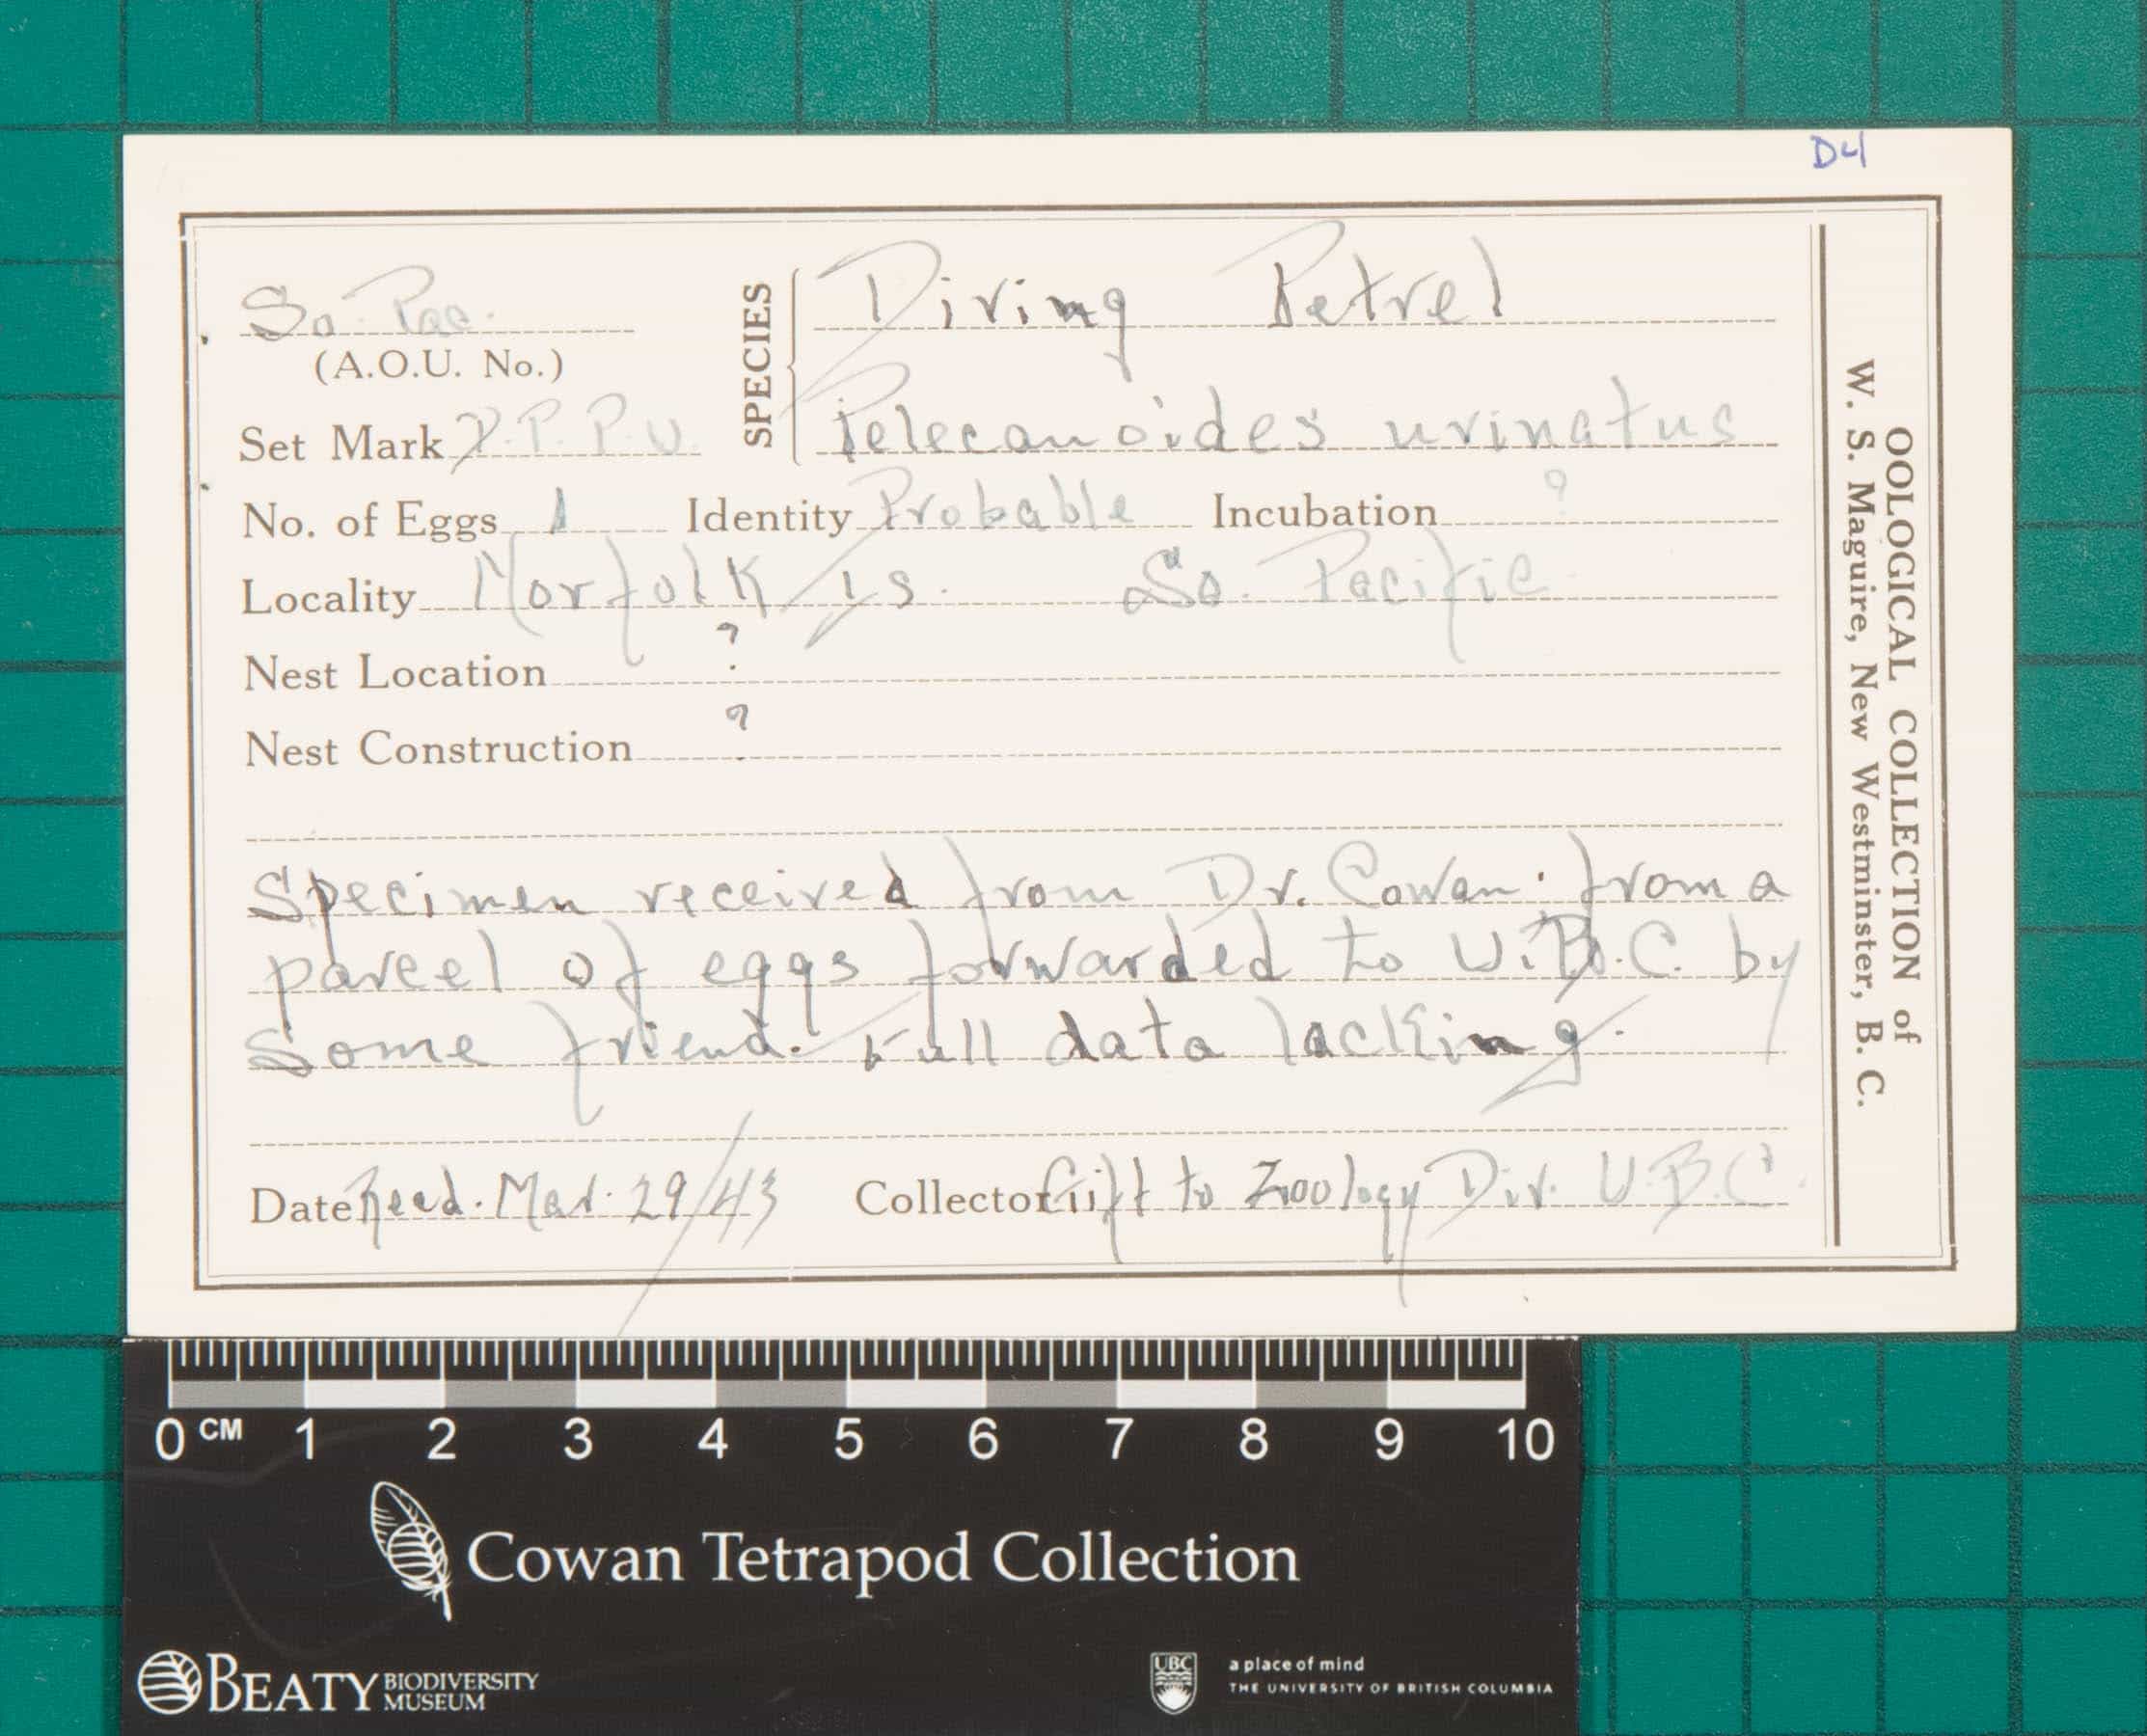 D4
So. Pac.
(A.O.U. No.)
SPECIES
Diving Petrel
Pelecanoides urinatus
Set Mark P.P.U.
No. of Eggs 1 Identity Probable Incubation ?
Locality Norfolk Is. So. Pacific
Nest Location ?
Nest Construction ?
Specimen received from Dr. Cowan. from a
parcel of eggs forwarded to U.B.C. by
some friend. Full data lacking.
Date Recd. Mar. 29/43 Collector Gift to Zoology Div. U.B.C.
OOLOGICAL COLLECTION of
W. S. Maguire, New Westminster, B. C.
0 CM 1 2 3 4 5 6 7 8 9 10
Cowan Tetrapod Collection
BEATY BIODIVERSITY
MUSEUM
UBC
a place of mind
THE UNIVERSITY OF BRITISH COLUMBIA